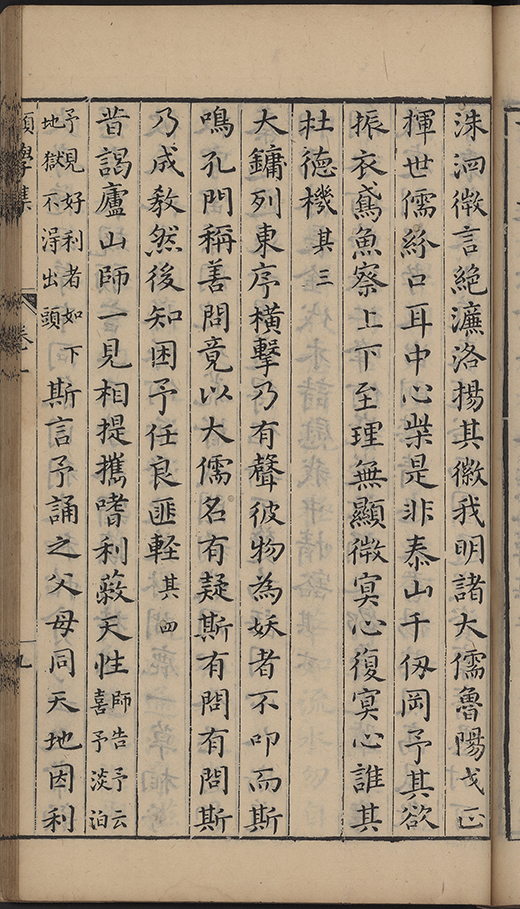 洙泗微言絕濂洛揚其徽我明諸大儒魯陽戈止
揮世儒紛口耳中心柴是非泰山千仭岡予其欲
振衣鳶魚察上下至理無顯微冥心復冥心誰其
杜德機其三
大鏞列東序橫擊乃有聲彼物為妖者不叩而斯
鳴孔門稱善問竟以大儒名有疑斯有問有問斯
乃成教然後知困予任良匪輕其四
昔謁廬山師一見相提攜嗜利蔽天性師告予云喜予淡泊
予見好利者如下地獄不淂出頭斯言予誦之父母同天地因利
學集
卷一
九